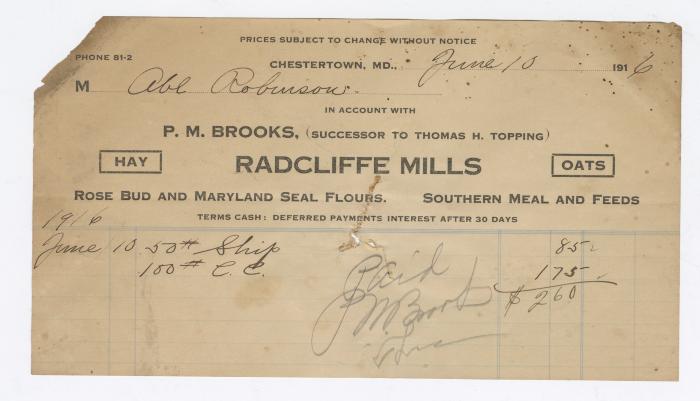 PRICES SUBJECT TO CHANGE WITHOUT NOTICE
PHONE 81-2
CHESTERTOWN, MD., June 10 1916
M Abe Robinson.
IN ACCOUNT WITH
P. M. BROOKS, (SUCCESSOR TO THOMAS H. TOPPING)
HAY RADCLIFFE MILLS OATS
ROSE BUD AND MARYLAND SEAL FLOURS. SOUTHERN MEAL AND FEEDS
TERMS CASH: DEFERRED PAYMENTS INTEREST AFTER 30 DAYS
1916
June 10 50# Ship 85
100# C.C. 175
$260
Paid
P M Brooks